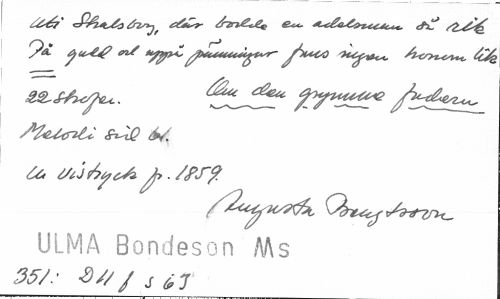 Uti Stralsborg, där bodde en adelsman så rik
På guld och uppå penningar fans ingen honom lik
22 strofer. Om den grymme fadern
Melodi sid
Ur vistryck fr. 1859.
Augusta Bengtsson
ULMA Bondeson Ms
351: D II f s 63